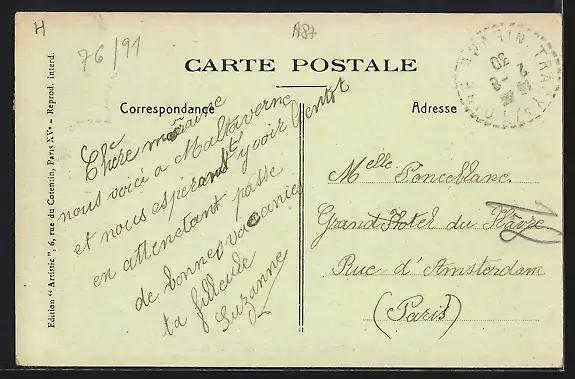 H
76/91
A87
CARTE POSTALE
Correspondance
Adresse
Chère marraine
nous voici a Maltaverne
et nous espérant y voir bientot
en attendant passe
de bonnes vacances
ta filleule
Suzanne
Melle Ponceblanc.
Grand Hotel du Havre
Rue d'Amsterdam
(Paris)
Edition " Artistic ", 6, rue du Cotentin, Paris XVe - Reprod. interd.